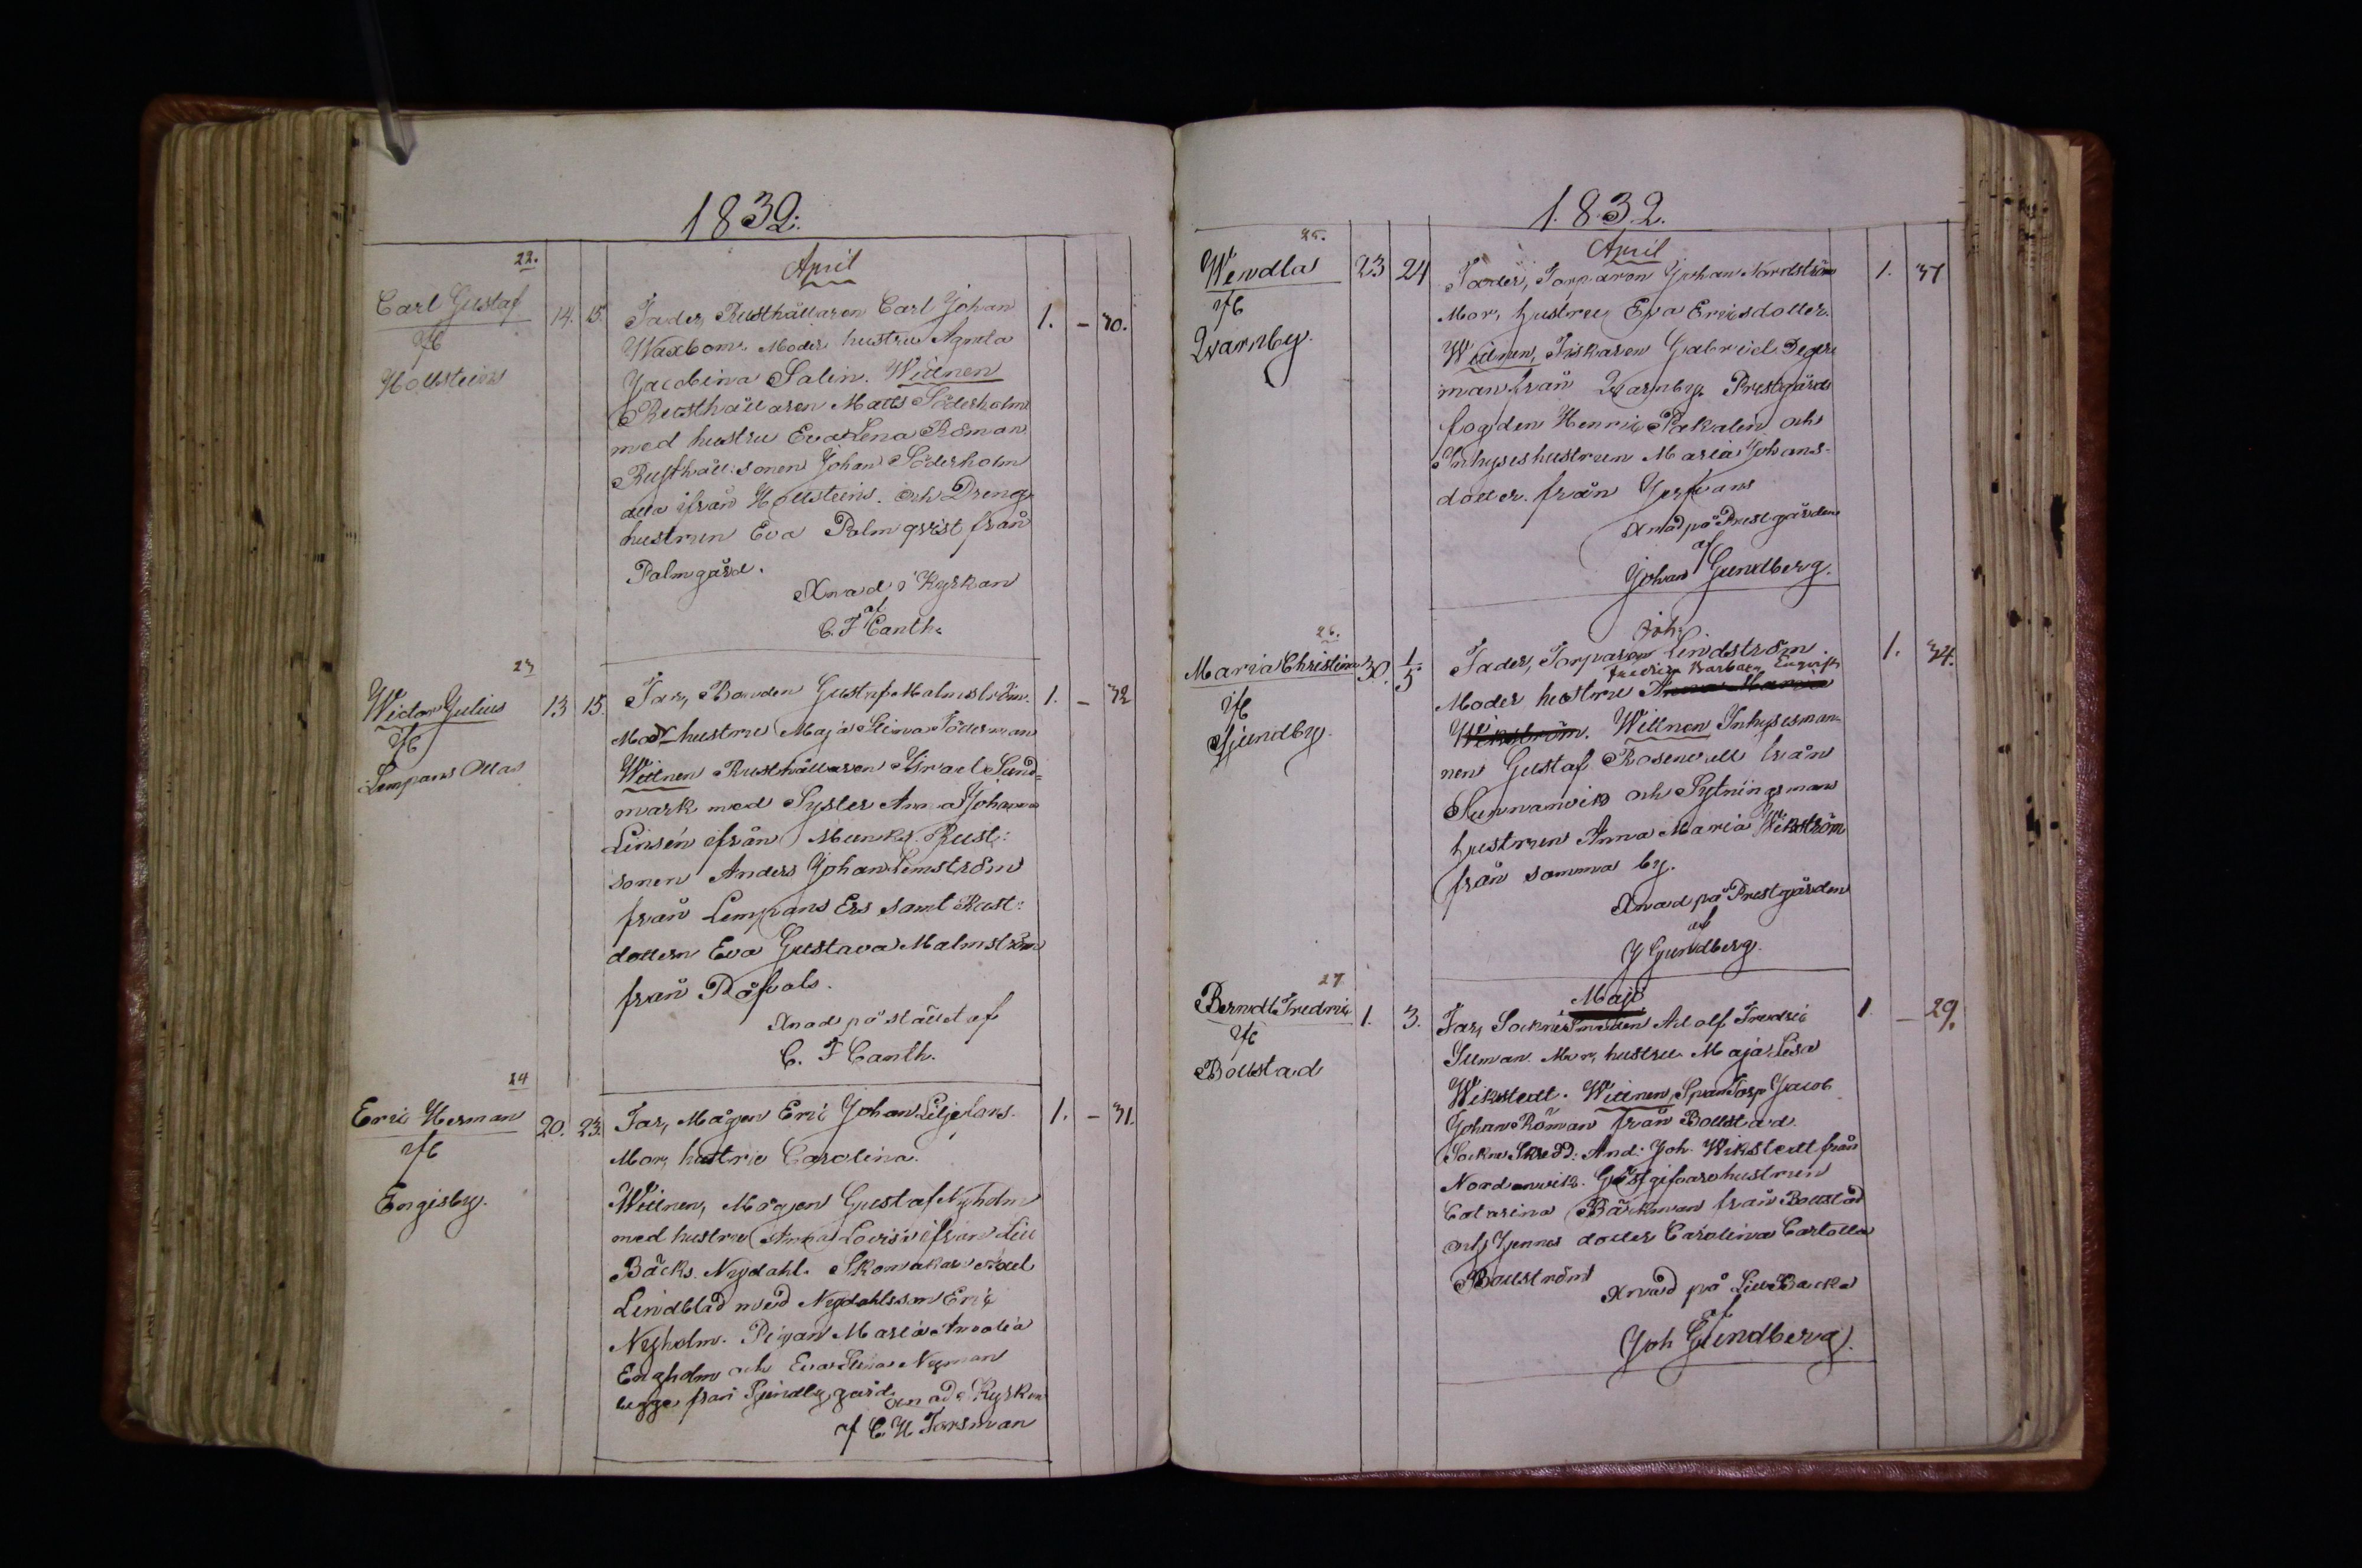 1832.
April
22.
Carl Gustaf
Hollsteins
14. 15.
Fader, Rusthållaren Carl Johan
Waxbom. Moder hustru Agneta
Jacobina Salin. Wittnen
Rusthållaren Matts Söderholm
med hustru Eva Lena Roman
Rusthåll: sonen Johan Söderholm
alla ifrån Hollsteins. Och Dreng
hustrun Eva Palmqvist från
Palmgård.
Xnad i Kyrkan
af
C. F Canth.
1. – 30.
23
Victor Julius
Lempans Ollas
13 15.
Far, Bonden Gustaf Malmström.
Mor hustru Maja Stina Söderman
Wittnen Rusthållaren Israel Sund=
mark med Syster Anna Johanna
Linsén ifrån Munks. Rust:
sonen Anders Johan Lemström
från Lempans Ers samt Rust:
dottern Eva Gustava Malmström
från Räfvals.
Xnad på stället af
C. F Canth.
1. – 32
24
Eric Herman
Engisby.
20. 23.
Far, Mågen Eric Johan Liljefors.
Mor, hustru Carolina.
Wittnen, Mågen Gustaf Nyholm
med hustru Anna Lovisa ifrån Lill
Bäcks. Nydahl. Skomakar
Lindblad med Nydahlsson Eric
Nyholm. Pigan Maria Amalia
Engholm och Eva Stina Nyman
begge från Pjundby gård.
Xnad i Kyrkan
af C. H Forsman
1. – 31.
1.8.3.2.
April
25.
Wendla
Qvarnby.
23 24
Fader, Torparen Johan Nordström
Mor, hustru Eva Ericsdotter.
Wittnen, Fiskaren Gabriel Deger
man från Qvarnby. Prestgårds
fogden Henric Pakalén och
Inhyseshustrun Maria Johans-
dotter. från Jerfvans
Xnad på Prestgården
af
Johan Gundberg.
1. 37
26.
Maria Christina
Pjundby.
30. 1/5
Joh:
Fader, Torparen Lindström.
Fredrica Barbara Engqvist
Moder hustru Anna Maria
Wikström. Wittnen Inhysesman
nen Gustaf Rosenvall från
Sunnanvik och Sytningsmans
hustrun Anna Maria Wikström
från samma by.
Xnad på Prestgården
af
J Gundberg.
1. 34.
27
Berndt Fredric
Bollstad
1. 3.
Maji
Far, Socknesmeden Adolf Fredric
Suman. Mor, hustru Maja Lisa
Wikstedt. Wittnen, Jacob
Johan Röman från Bollstad.
Sockne Skredd: And: Joh. Wikstedt från
Nordanvik. Gästgifvarehustrun
Catarina Bäckman från Bollstad
och Jennes dotter Carolina Carlotta
Bollström
Xnad på Lill Backa
af
Joh Gundberg.
1. – 29.